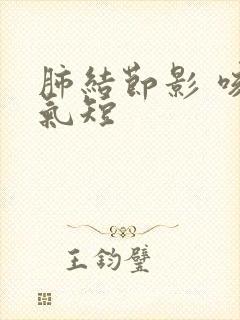 肺結節影 咳
氣短
王鈞璧